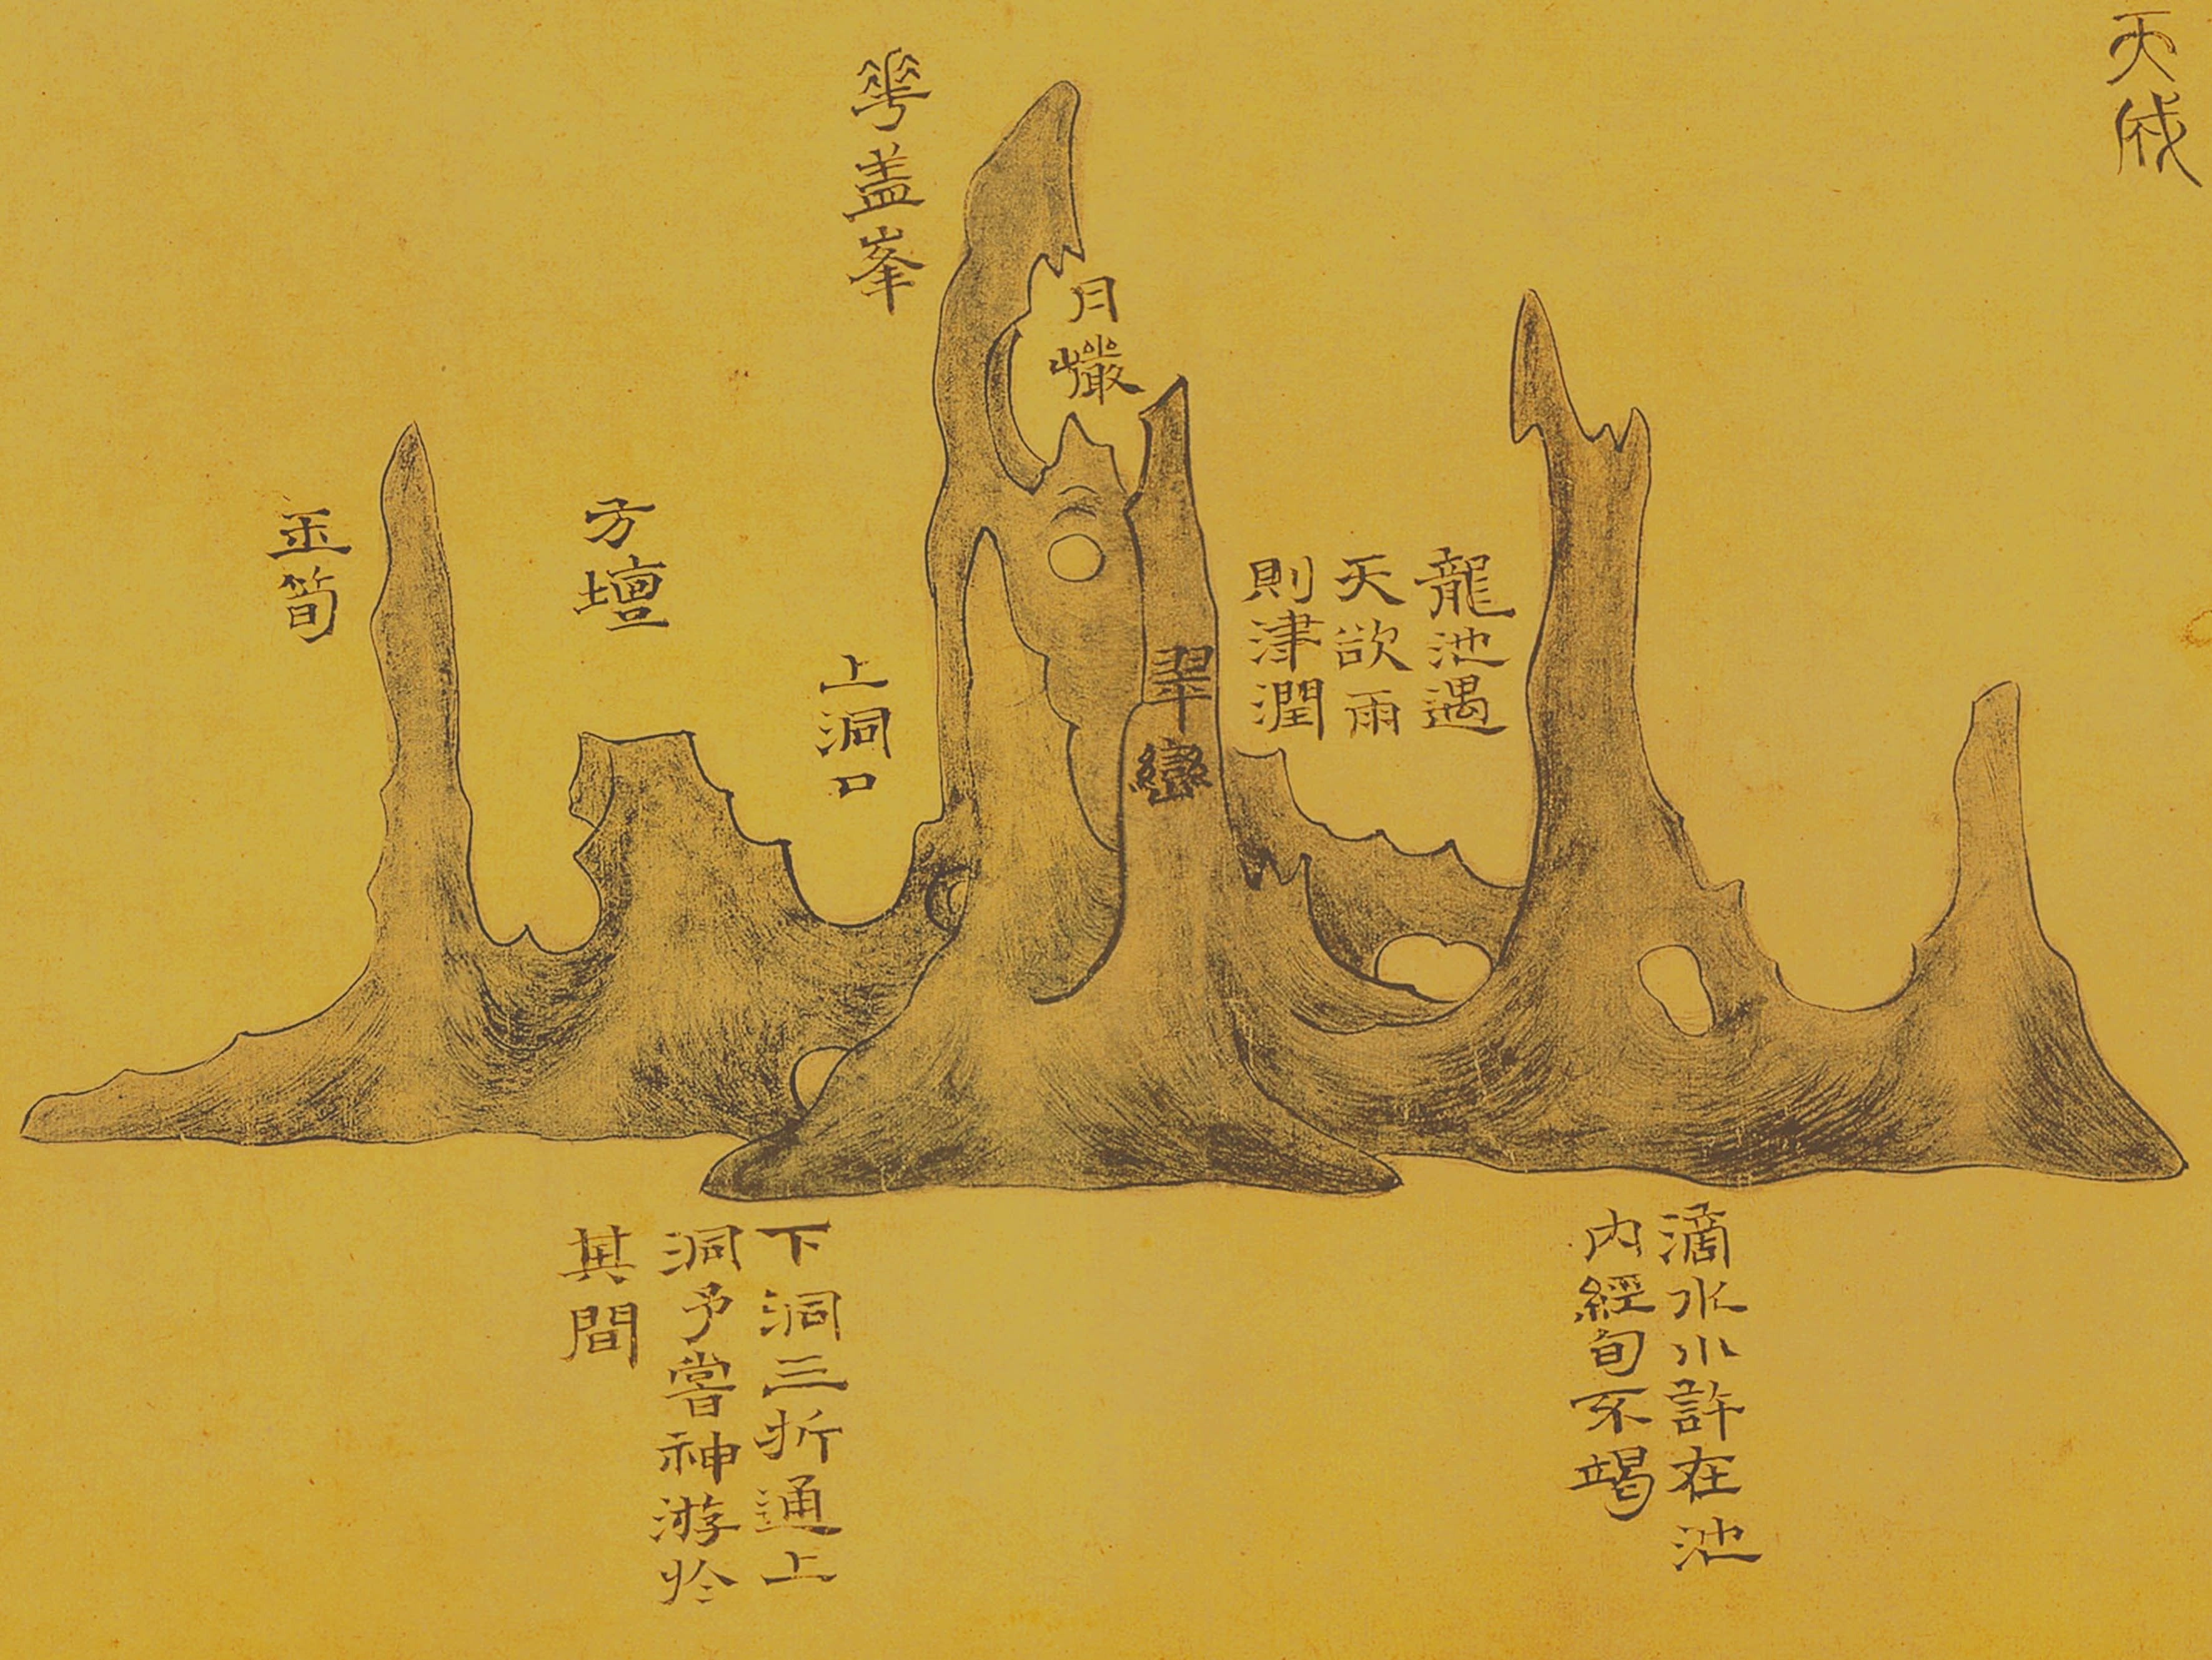 天成
龍池遇
天欲雨
則津潤
月巖
翠巒
華盖峯
上洞口
方壇
玉筍
滴水小許在池
内經旬不竭
下洞三折通上
洞予嘗神游於
其間